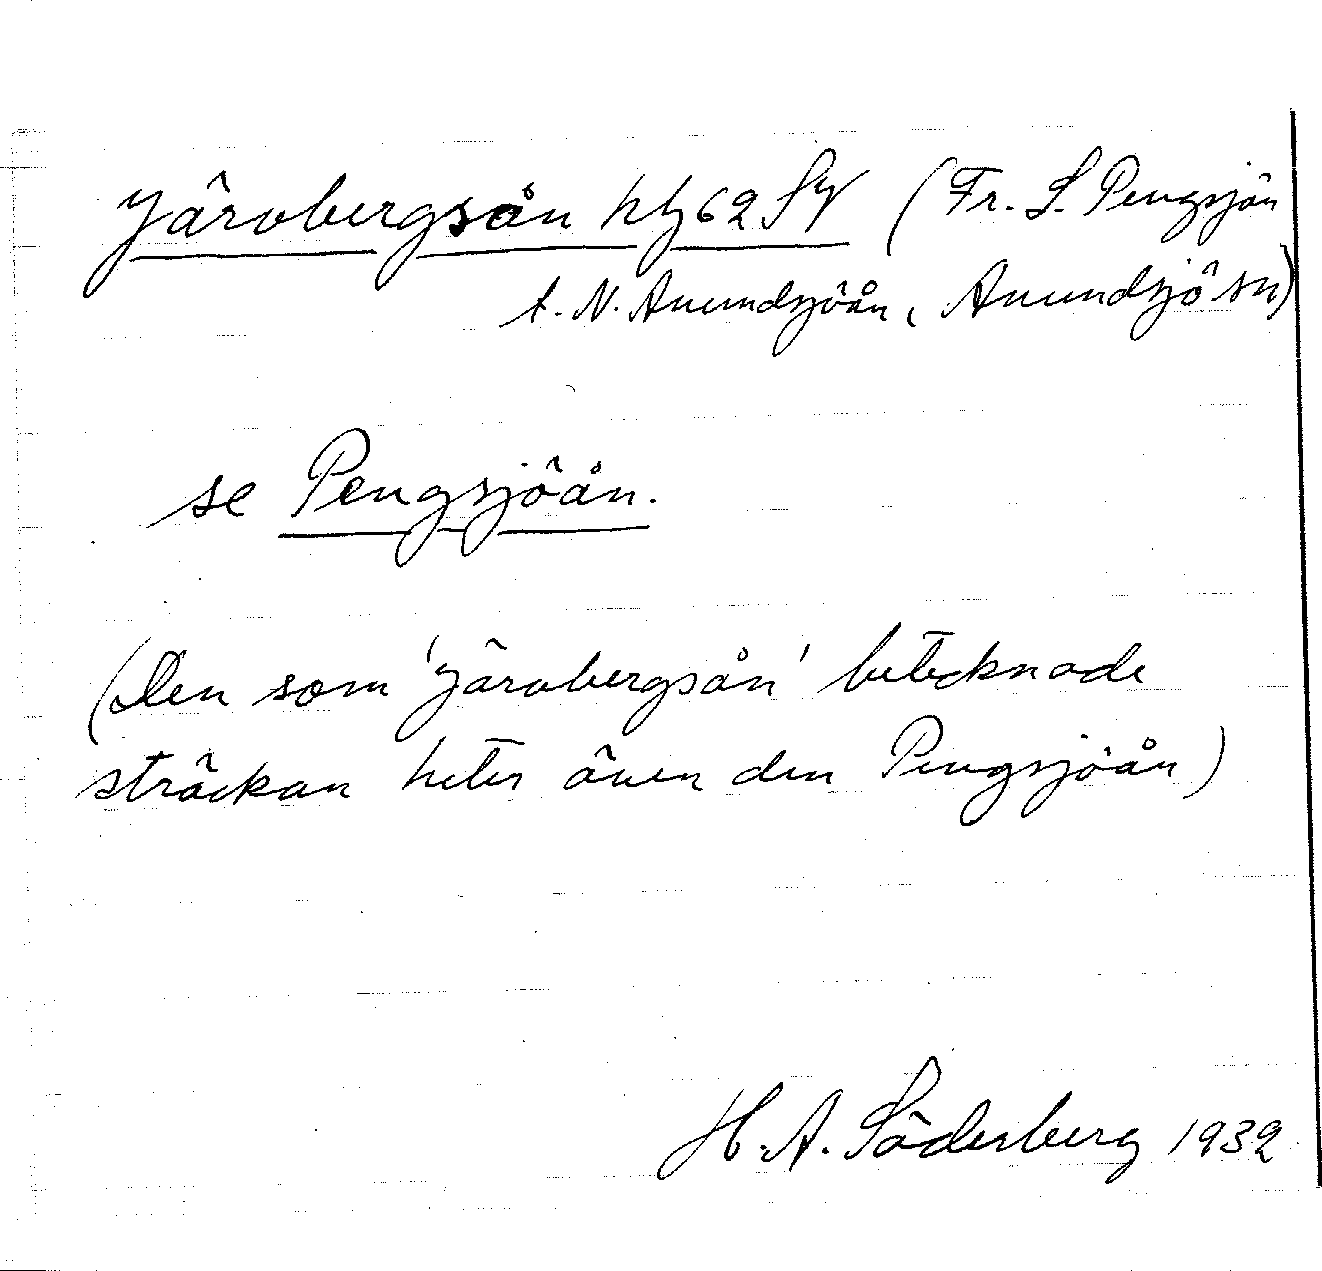 Järvbergsån kbl 62 SV (Fr. S. Pengsjön
t. N. Anundsjöån, Anundsjö sn)
se Pengsjöån.
(Den som 'Järvbergsån' betecknade
sträckan heter även den Pengsjöån)
H. A. Söderberg 1932